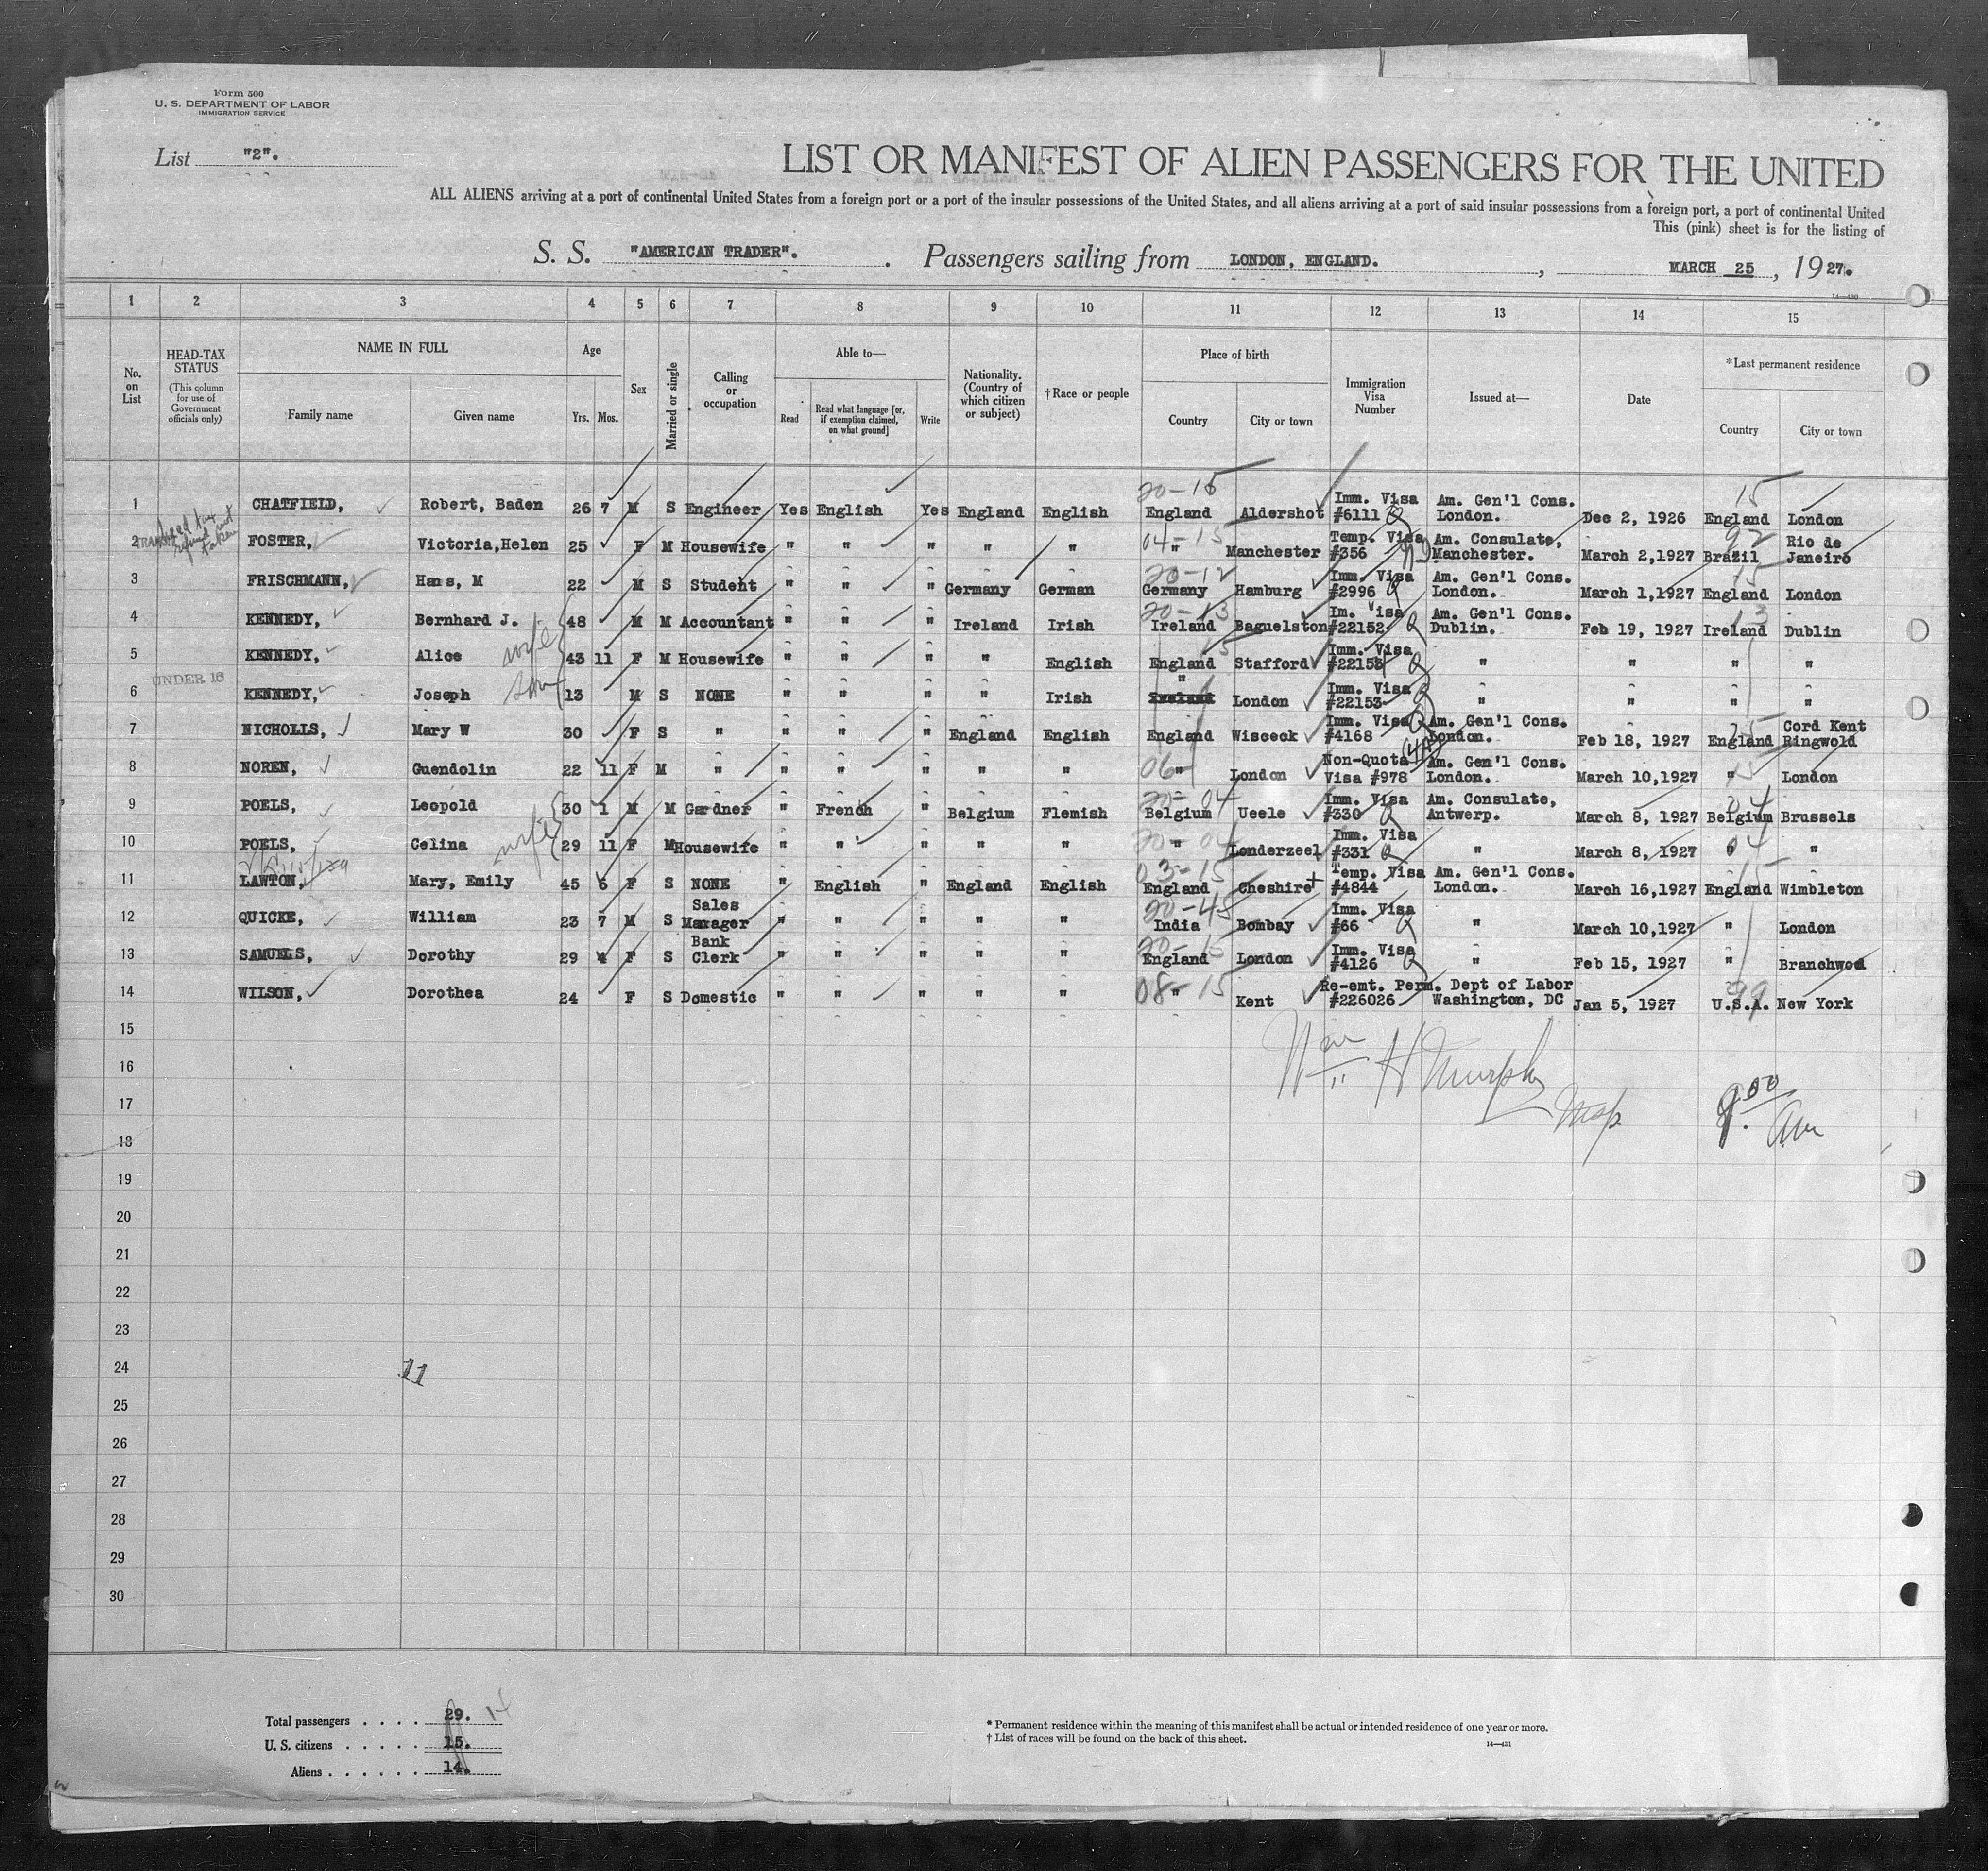 Form 500
U. S. DEPARTMENT OF LABOR
IMMIGRATION SERVICE
List "2".
LIST OR MANIFEST OF ALIEN PASSENGERS FOR THE UNITED
ALL ALIENS arriving at a port of continental United States from a foreign port or a port of the insular possessions of the United States, and all aliens arriving at a port of said insular possessions from a foreign port, a port of continental United
This (pink) sheet is for the listing of
S. S. "AMERICAN TRADER". Passengers sailing from LONDON, ENGLAND. , MARCH 25 , 1927.
14—430
1 2 3 4 5 6 7 8 9 10 11 12 13 14 15
No. on List
HEAD-TAX STATUS
(This column for use of Government officials only)
NAME IN FULL
Family name Given name
Age
Yrs. Mos.
Sex
Married or single
Calling or occupation
Able to—
Read Read what language [or, if exemption claimed, on what ground] Write
Nationality. (Country of which citizen or subject)
†Race or people
Place of birth
Country City or town
Immigration Visa Number
Issued at—
Date
*Last permanent residence
Country City or town
20-15 15
1 CHATFIELD, Robert, Baden 26 7 M S Engineer Yes English Yes England English England Aldershot Imm. Visa #6111 Q Am. Gen'l Cons. London. Dec 2, 1926 England London
TRANSIT head tax refund not taken
04-15 92
2 FOSTER, Victoria,Helen 25 F M Housewife " " " " " " Manchester Temp. Visa #356 Am. Consulate, Manchester. March 2,1927 Brazil Rio de Janeiro
20-12 15
3 FRISCHMANN, Hans, M 22 M S Student " " " Germany German Germany Hamburg Imm. Visa #2996 Q Am. Gen'l Cons. London. March 1,1927 England London
20-13 13
4 KENNEDY, Bernhard J. 48 M M Accountant " " " Ireland Irish Ireland Baguelston Im. Visa #22152 Q Am. Gen'l Cons. Dublin. Feb 19, 1927 Ireland Dublin
15
5 KENNEDY, Alice wife 43 11 F M Housewife " " " " English England Stafford Imm. Visa Q " " " "
UNDER 16
6 KENNEDY, Joseph son 13 M S NONE " " " " Irish " London Imm. Visa #22153 Q " " " "
7 NICHOLLS, Mary W 30 F S " " " " England English England Wisceck Imm. Visa #4168 Q Am. Gen'l Cons. London. Feb 18, 1927 England Cord Kent Ringwold
06- 15
8 NOREN, Guendolin 22 11 F M " " " " " " " London Non-Quota Visa #978 (4A) Am. Gen'l Cons. London. March 10,1927 " London
20-04 04
9 POELS, Leopold 30 1 M M Gardner " French " Belgium Flemish Belgium Uccle Imm. Visa #330 Q Am. Consulate, Antwerp. March 8, 1927 Belgium Brussels
20-04 04
10 POELS, Celina wife 29 11 F M Housewife " " " " " " Londerzeel Imm. Visa #331 Q " March 8, 1927 " "
03-15 15
11 LAWTON, Mary, Emily 45 6 F S NONE " English " England English England Cheshire Temp. Visa #4844 Am. Gen'l Cons. London. March 16,1927 England Wimbleton
20-45
12 QUICKE, William 23 7 M S Sales Manager " " " " " India Bombay Imm. Visa #66 Q " March 10,1927 " London
20-15
13 SAMUELS, Dorothy 29 4 F S Bank Clerk " " " " " England London Imm. Visa #4126 Q " Feb 15, 1927 " Branchwod
08-15 99
14 WILSON, Dorothea 24 F S Domestic " " " " " " Kent Re-emt. Perm. #226026 Dept of Labor Washington, DC Jan 5, 1927 U.S.A. New York
15
16
Wm H Murphy
Insp.
9.00 Am
17
18
19
20
21
22
23
24
11
25
26
27
28
29
30
Total passengers . . . . 29. 14
U. S. citizens . . . . . 15.
Aliens . . . . . . 14.
* Permanent residence within the meaning of this manifest shall be actual or intended residence of one year or more.
† List of races will be found on the back of this sheet.
14—431